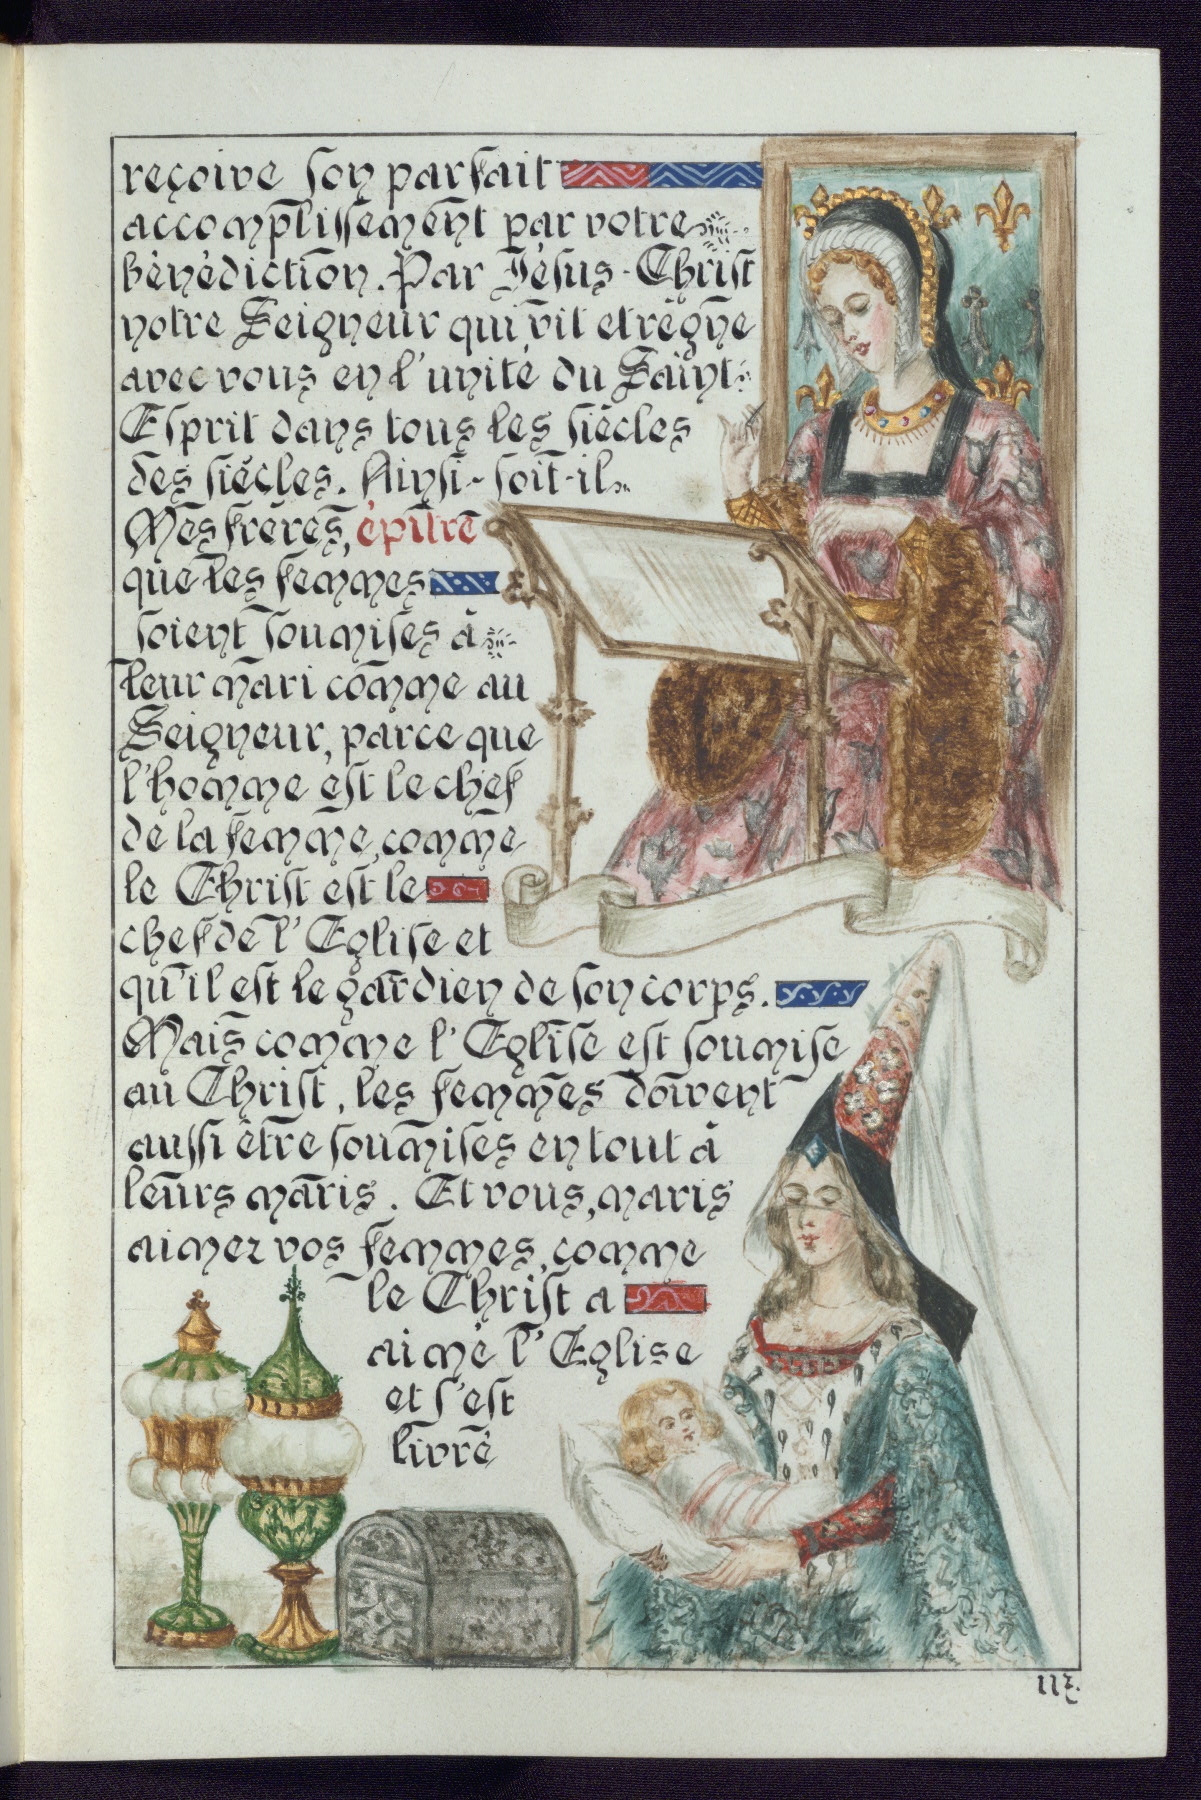 reçoive son parfait
accomplissement par votre
bénédiction. Par Jésus-Christ
notre Seigneur qui vit et règne
avec vous en l'unité du Saint
Esprit dans tous les siècles
des siècles. Ainsi-soit-il
Mes frères, épitre
que les femmes
soient soumises à
leur mari comme au
Seigneur, parce que
l'homme est le chef
de la femme, comme
le Christ est le
chef de l'Eglise et
qu'il est le gardien de son corps.
Mais comme l'Eglise est soumise
au Christ, les femmes doivent
aussi être soumises en tout à
leurs maris. Et vous, maris
aimez vos femmes, comme
le Christ a
aimé l'Eglise
et s'est
livré